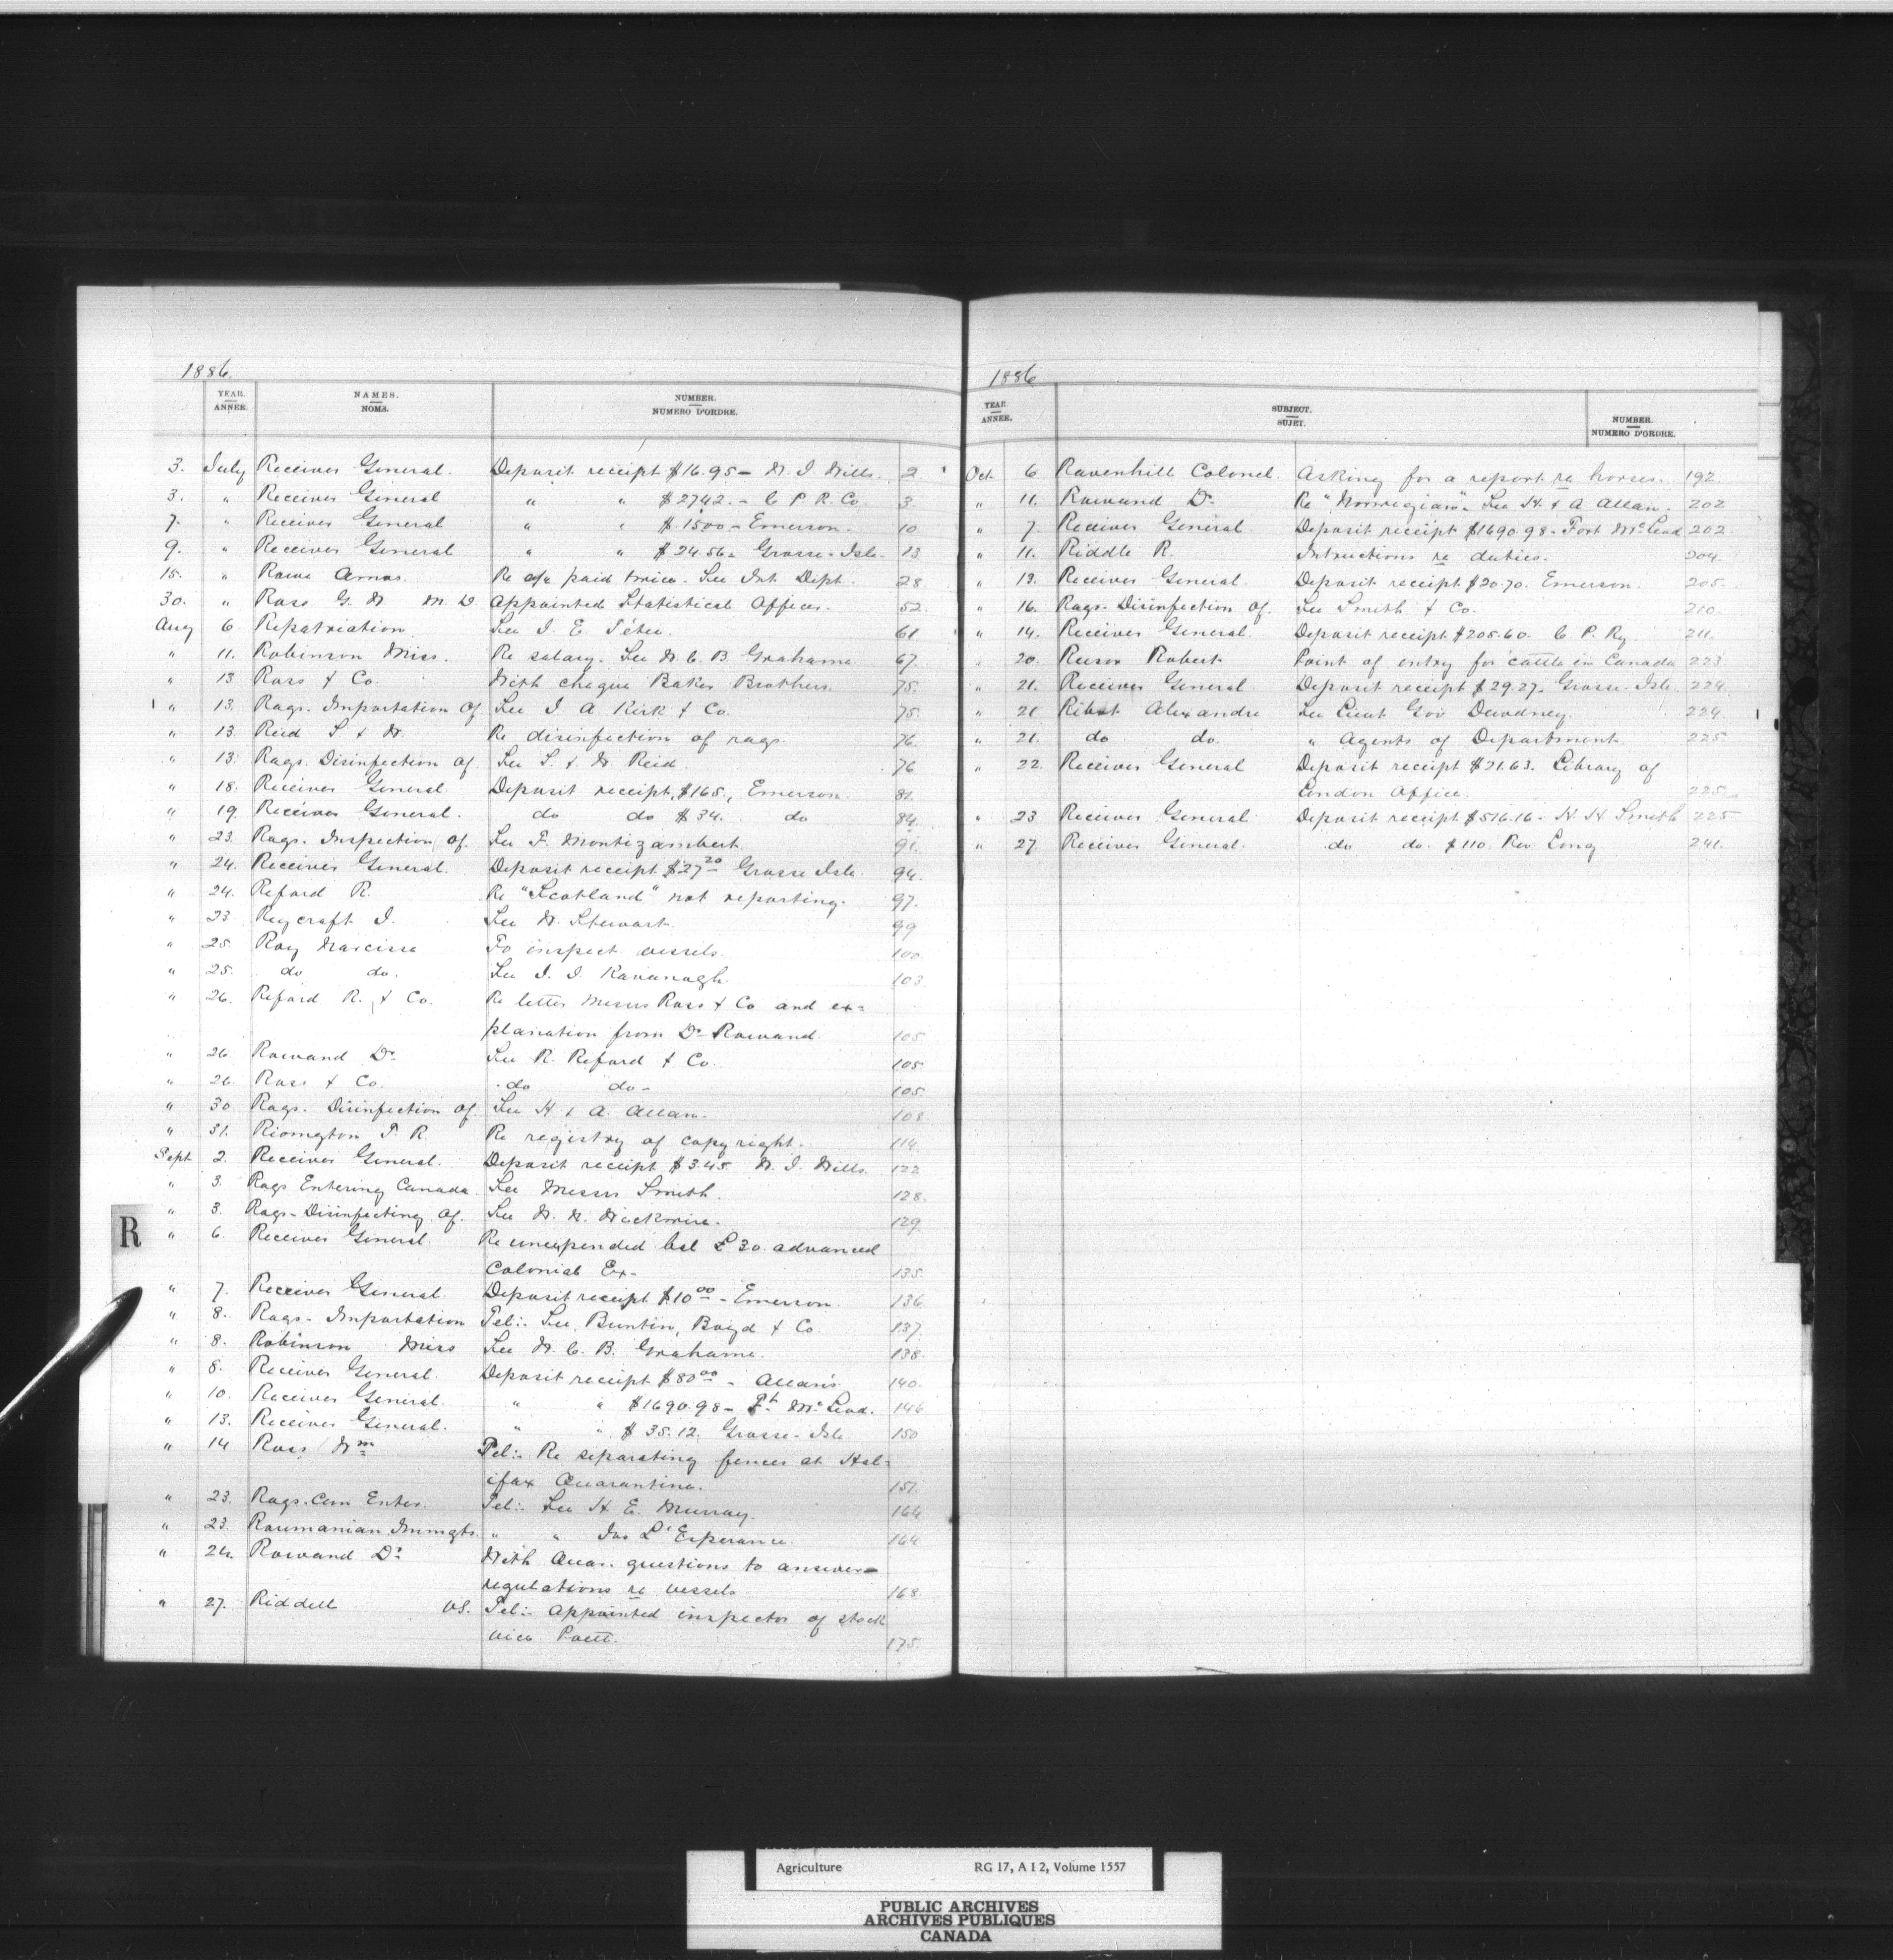 1886.
YEAR. ANNÉE. NAMES. NOMS. NUMBER. NUMERO D'ORDRE.
3. July Receiver General. Deposit receipt $16.95 - W. J. Wills. 2
3. " Receiver General " " $2742. - C P R. Co. 3.
7. " Receiver General " " $1500 - Emerson. 10
9. " Receiver General " " $24.56 - Grosse-Isle. 13
15. " Rowe Amos. Re a/c paid twice. See Int. Dept. 28
30. " Ross G. W. M.D. Appointed Statistical Officer. 52.
Aug 6. Repatriation See J. E. Têtu. 61
" 11. Robinson Miss. Re salary. See W. C. B. Grahame. 67.
" 13 Ross & Co. With cheque Baker Brothers. 75.
" 13. Rags. Importation Of See J. A. Kirk & Co. 75.
" 13. Reid S. & W. Re disinfection of rags 76.
" 13. Rags. Disinfection of. See S. & W. Reid. 76
" 18. Receiver General. Deposit receipt, $165., Emerson. 81.
" 19. Receiver General. do do $34. do 84.
" 23. Rags. Inspection of. See F. Montizambert. 91.
" 24. Receiver General. Deposit receipt $27 20 Grosse Isle. 94.
" 24. Reford R. Re "Scotland" not reporting. 97.
" 23 Reycraft J. See W. Stewart. 99
" 25. Roy Narcisse To inspect vessels. 100
" 25. do do. See J. J. Kavanagh. 103
" 26. Reford R. & Co. Re letter Messrs Ross & Co and ex=
planation from Dr Rowand. 105
" 26 Rowand Dr See R. Reford & Co. 105.
" 26. Ross & Co. do do - 105.
" 30 Rags. Disinfection of. See H & A. Allan. 108.
" 31. Riomgton T. R. Re registry of copyright. 114.
Sept 2. Receiver General. Deposit receipt $3.45 W. J. Wills. 122
" 3. Rags Entering Canada. See Messrs Smith. 128.
" 3. Rags - Disinfecting of. See W. W. 129.
" 6. Receiver General. Re unexpended bal £30. advanced
Colonial Ex - 135.
R
" 7. Receiver General. Deposit receipt $10 00 - Emerson. 136.
" 8. Rags - Importation Tel:- See Buntin, Boyd & Co. 137.
" 8. Robinson Miss See W. C. B. Grahame. 138.
" 8. Receiver General. Deposit receipt $80 00 - Allan's 140.
" 10. Receiver General. " " $1690.98 - Ft McLeod. 146
" 13. Receiver General. " " $35.12. Grosse - Isle. 150
" 14 Ross Wm Tel:- Re separating fences at Hal=
ifax Quarantine. 151.
" 23. Rags. Can Enter. Tel:- See H. E. Murray. 164
" 23. Roumanian Immgts. " " Jas L'Esperance. 164
" 24. Rowand Dr With Quar. questions to answer -
regulations re vessels 168.
" 27. Riddell VS. Tel:- appointed inspector of stock
vice Poett. 175.
1886
YEAR. ANNÉE. SUBJECT. SUJET. NUMBER. NUMERO D'ORDRE.
Oct. 6 Ravenhill Colonel. Asking for a report re horses. 192.
" 11. Rowand Dr Re "Norwegian". See H. & A Allan. 202
" 7. Receiver General. Deposit receipt $1690.98 - Fort McLeod 202.
" 11. Riddle R. Intructions re duties. 204.
" 13. Receiver General. Deposit receipt $20.70. Emerson. 205.
" 16. Rags - Disinfection of. See Smith & Co. 210.
" 14. Receiver General. Deposit receipt $205.60. C. P. Ry. 211.
" 20. Reesor Robert Point of entry for cattle in Canada 223.
" 21. Receiver General Deposit receipt $29.27. Grosse - Isle. 224.
" 21 Ribot Alexandre See Lieut Gov Dewdney. 224.
" 21. do do. " Agents of Department. 225.
" 22. Receiver General Deposit receipt $21.63. Library of
London Office. 225.
" 23 Receiver General Deposit receipt $516.16 - H. H. Smith 225
" 27 Receiver General. do do. $110. Rev. Long 241.
Agriculture RG 17, A I 2, Volume 1557
PUBLIC ARCHIVES
ARCHIVES PUBLIQUES
CANADA